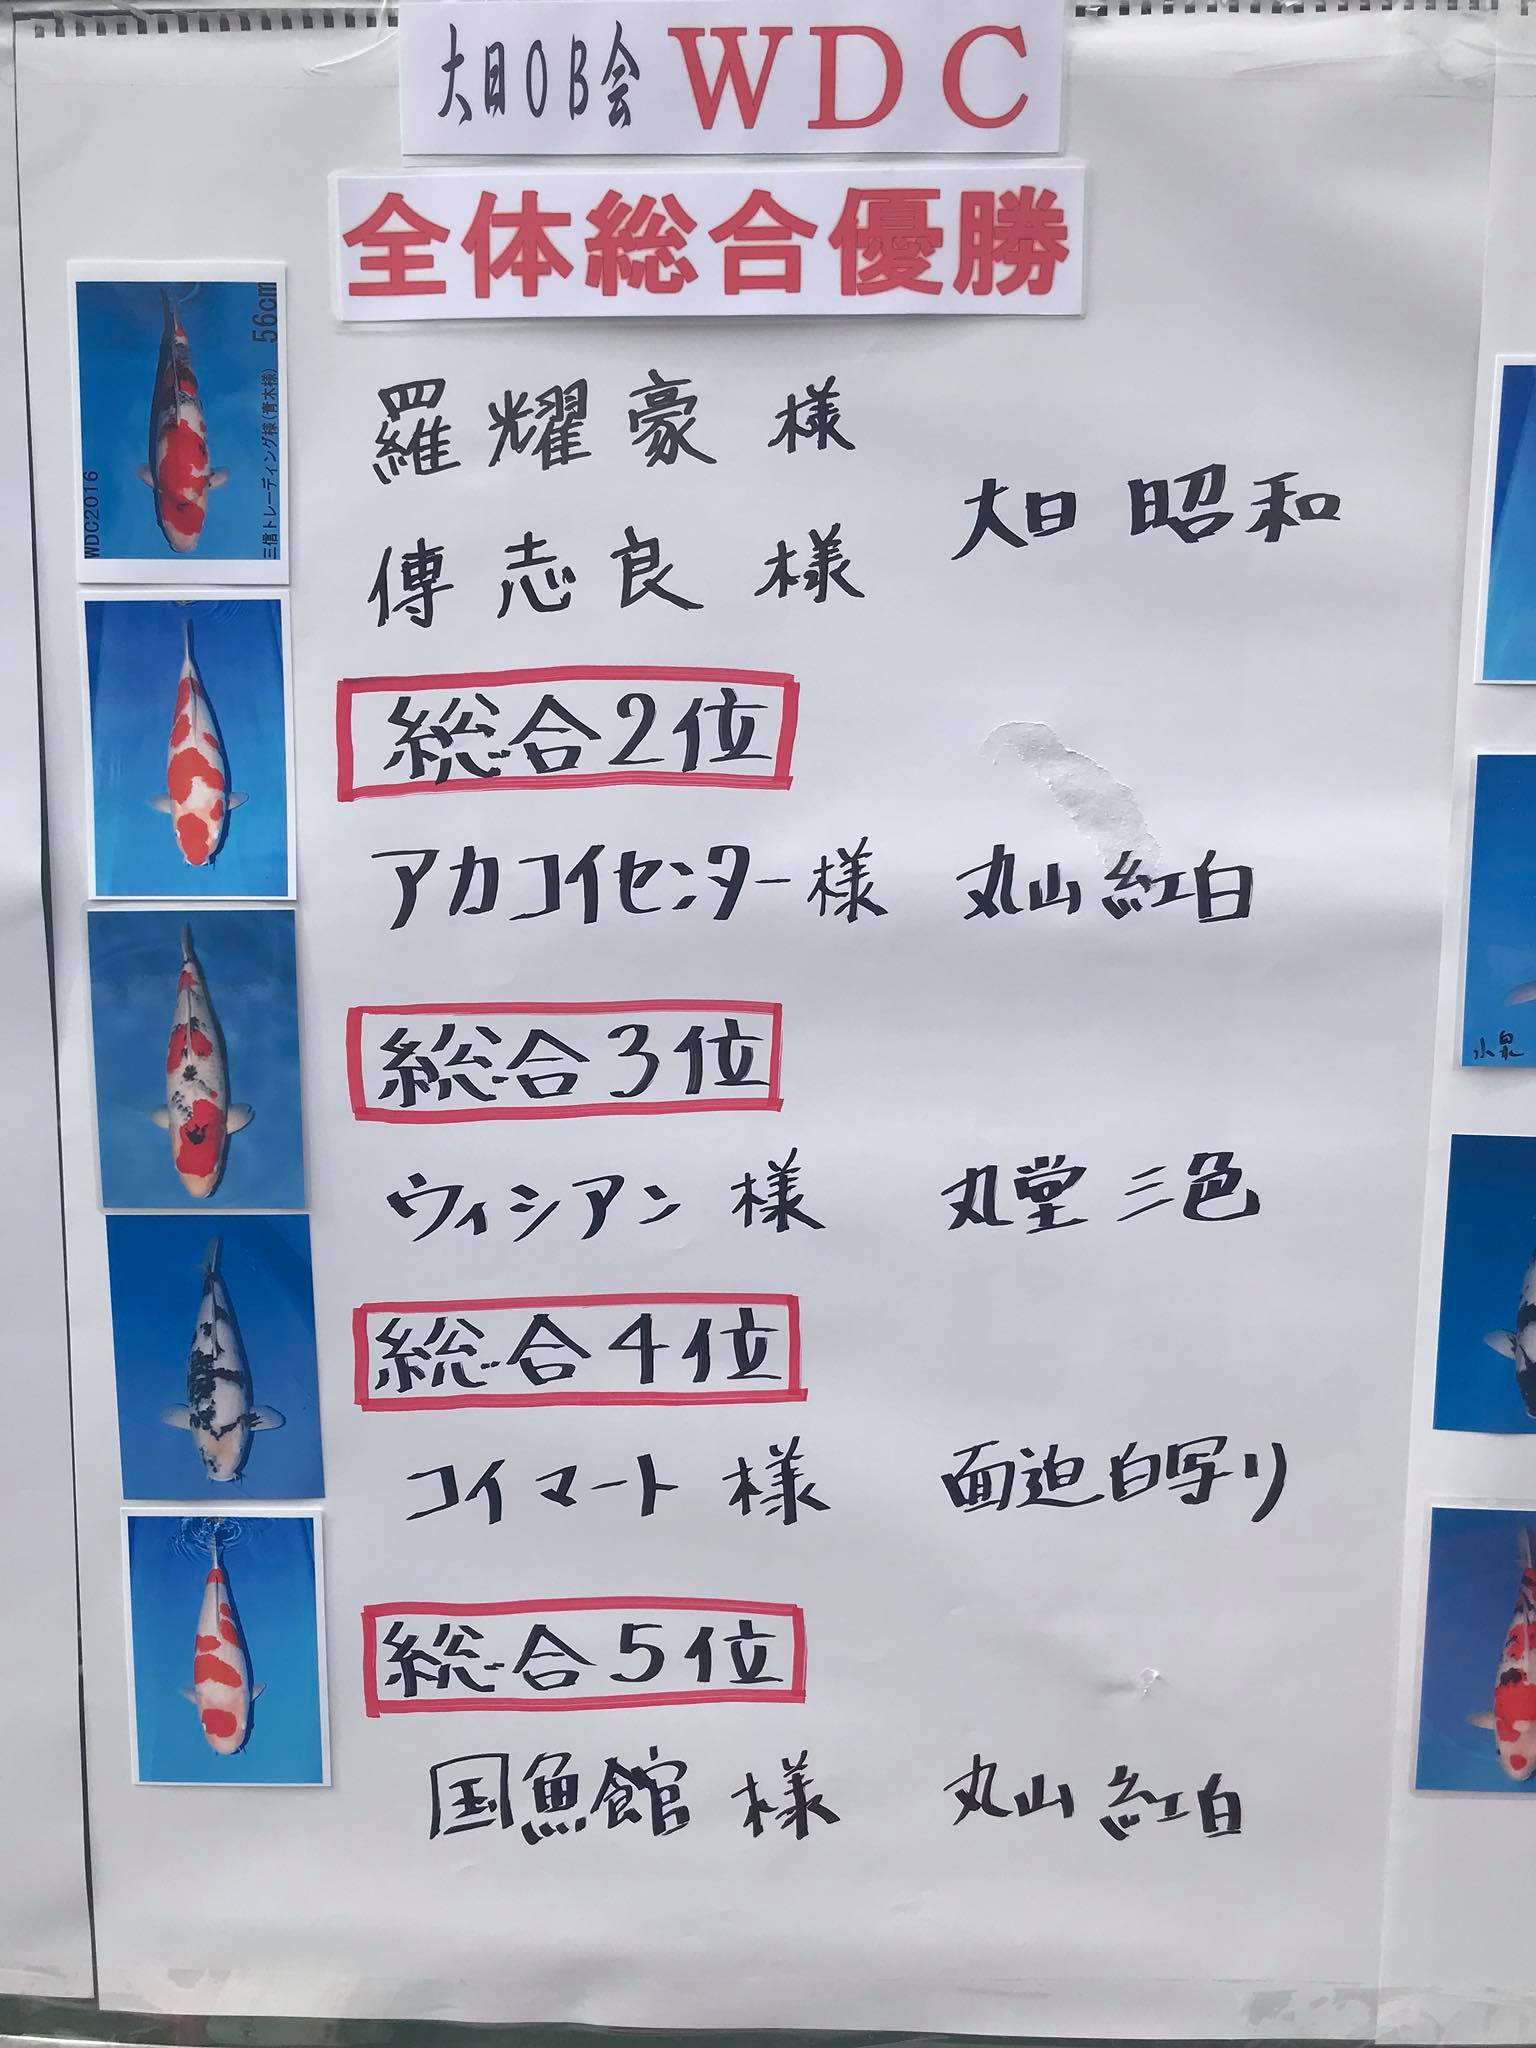 大日OB会 WDC
全体総合優勝
56cm
三信トレーディング様(青木様)
WDC2016
羅耀豪様
傳志良様
大日 昭和
総合2位
アカコイセンター様 丸山 紅白
総合3位
ウィシアン様 丸堂 三色
総合4位
コイマート様 面迫 白写り
総合5位
国魚館様 丸山 紅白
水泉